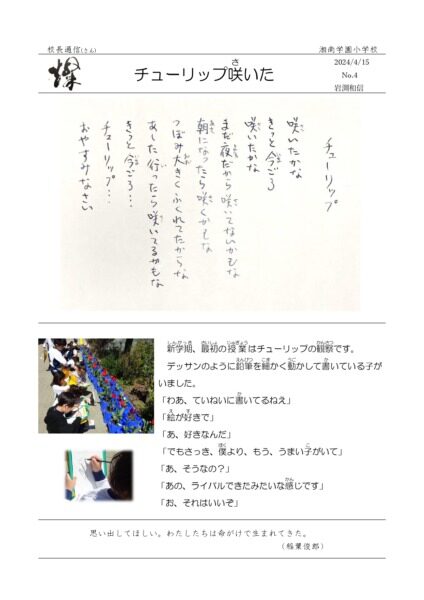 校長通信(さん)
湘南学園小学校
燦
チューリップ咲いた
2024/4/15
No.4
岩渕和信
チューリップ
咲いたかな
きっと今ごろ
咲いたかな
まだ夜だから咲いてないかもな
朝になったら咲くかもな
つぼみ大きくふくれてたからな
あした行ったら咲いてるかもな
きっと今ごろ…
チューリップ…
おやすみなさい
新学期、最初の授業はチューリップの観察です。
デッサンのように鉛筆を細かく動かして書いている子が
いました。
「わあ、ていねいに書いてるねえ」
「絵が好きで」
「あ、好きなんだ」
「でもさっき、僕より、もう、うまい子がいて」
「あ、そうなの？」
「あの、ライバルできたみたいな感じです」
「お、それはいいぞ」
思い出してほしい。わたしたちは命がけで生まれてきた。
（稲葉俊郎）